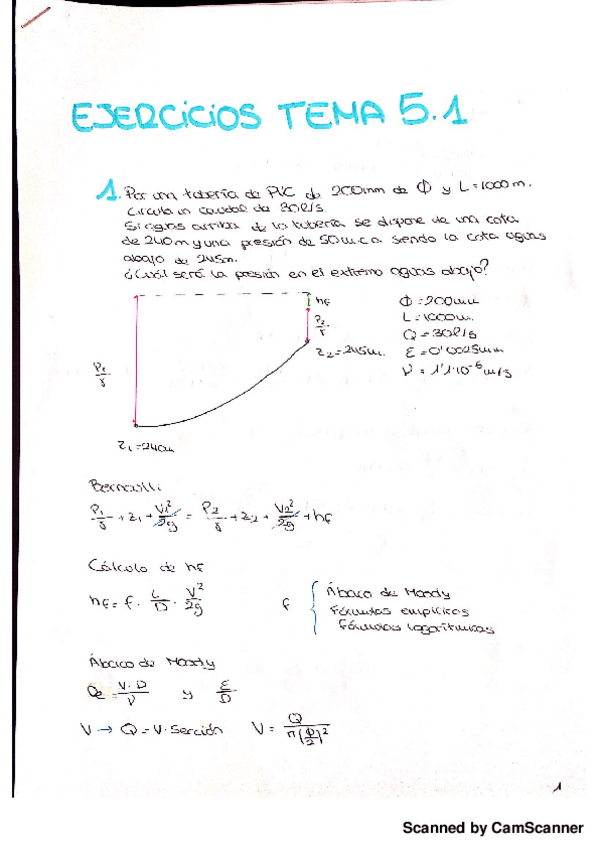 EJERCICIOS TEMA 5.1
1. Por una tubería de PVC de 200mm de Φ y L=1000m.
Circula un caudal de 30l/s.
Si aguas arriba de la tubería se dispone de una cota
de 240m y una presión de 50m.c.a. siendo la cota aguas
abajo de 245m.
¿Cuál será la presión en el extremo aguas abajo?
hf
P2/γ
z2=245m.
P1/γ
z1=240m
Φ=200mm
L=1000m.
Q=30l/s
ε=0'0025mm
ν=1'1·10^-6 m/s
Bernouilli
P1/γ + z1 + V1²/2g = P2/γ + z2 + V2²/2g + hf
Cálculo de hf
hf = f · L/D · V²/2g
f { Ábaco de Moody
Fórmulas empíricas
Fórmulas logarítmicas
Ábaco de Moody
Re = V·D/ν y ε/D
V → Q=V·Sección V = Q/π(Φ/2)²
1
Scanned by CamScanner